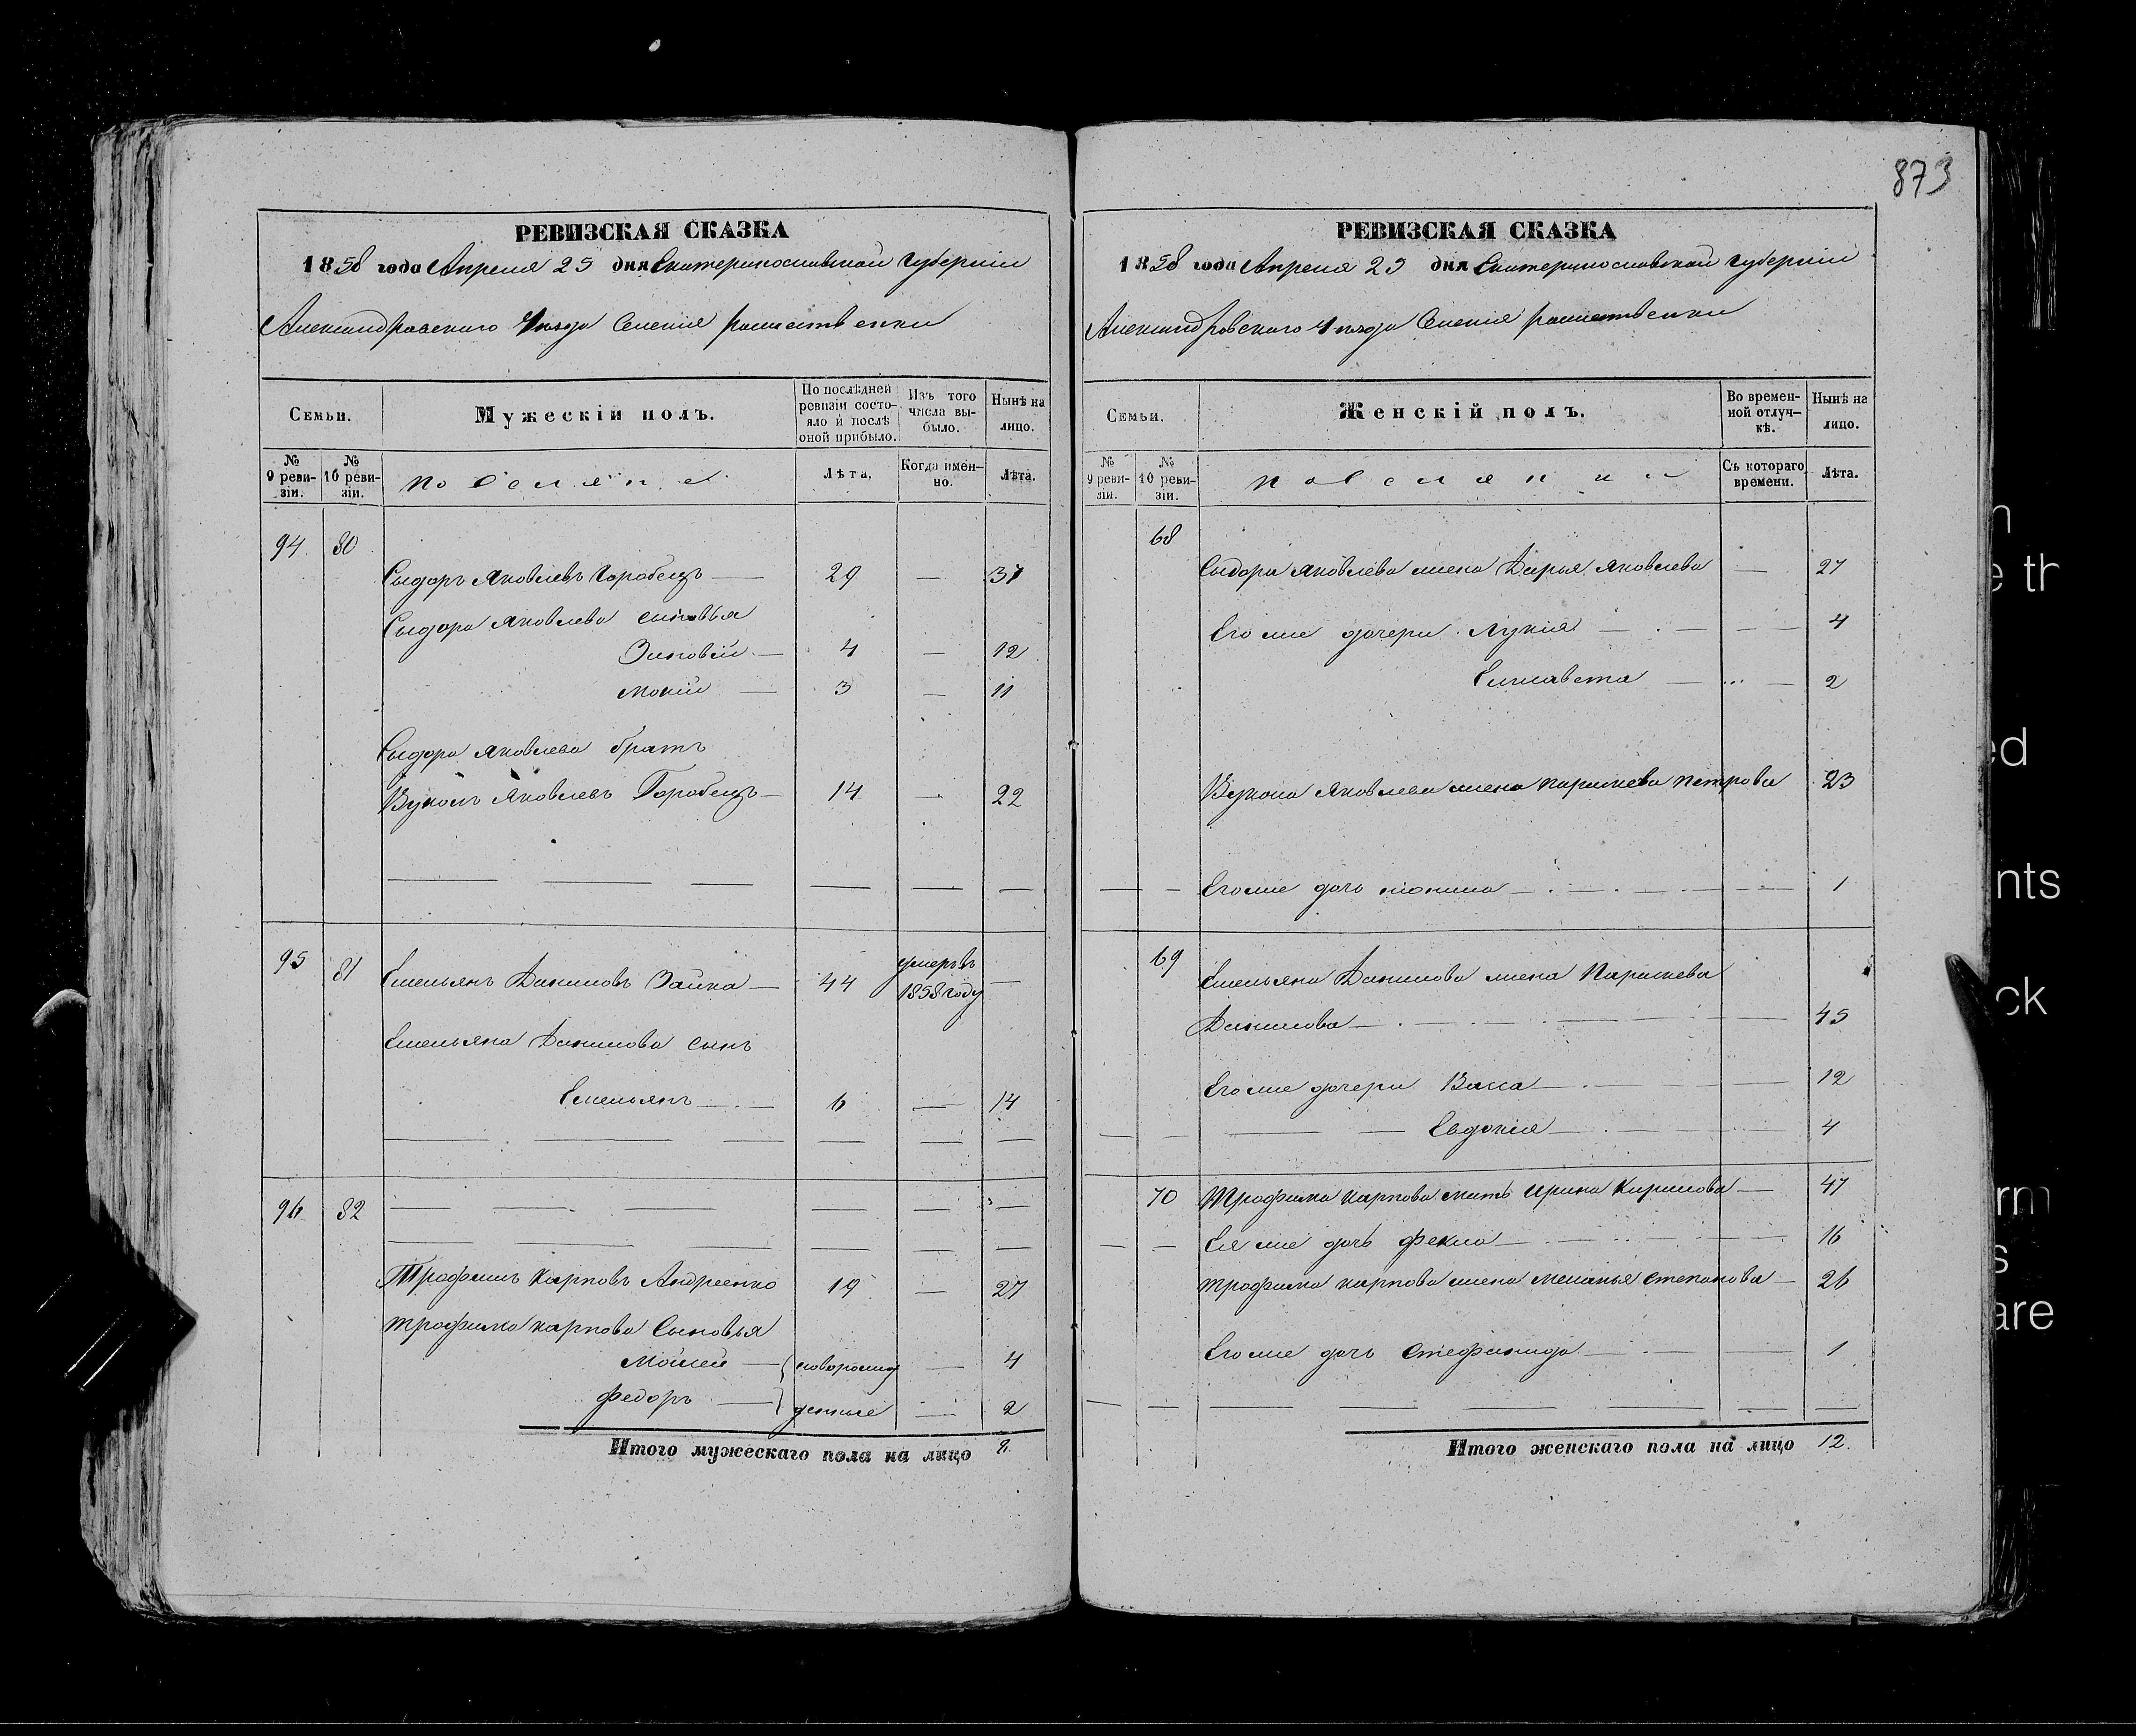 873
РЕВИЗСКАЯ СКАЗКА
1858 года Апреля 25 дня Екатеринославской губернии
Александровского Уезда Селения рашевтвенки
Семьи.
Мужескій полъ.
По послѣдней ревизіи состояло и послѣ оной прибыло.
Изъ того числа выбыло.
Нынѣ на лицо.
№ 9 ревизіи.
№ 10 ревизіи.
поселяне
Лѣта.
Когда именно.
Лѣта.
94 80
Сыдоръ Яковлевъ Горобецъ — 29 — 37
Сыдора Яковлева сыновья
Зиновій — 4 — 12
Мокій — 3 — 11
Сыдора Яковлева братъ
Вуколъ Яковлевъ Горобецъ — 14 — 22
95 81 Емельянъ Даниловъ Заика — 44 умеръ въ 1858 году —
Емельяна Данилова сынъ
Емельянъ — 6 — 14
96 82
Трофимъ Карповъ Андреенко 19 — 27
Трофима Карпова Сыновья
Мойсей — новорож — 4
Федоръ — денные — 2
Итого мужескаго пола на лицо 8.
РЕВИЗСКАЯ СКАЗКА
1858 года Апреля 25 дня Екатеринославской губернии
Александровского Уезда Селения рашевтвенки
Семьи.
Женскій полъ.
Во временной отлучкѣ.
Нынѣ на лицо.
№ 9 ревизіи.
№ 10 ревизіи.
поселянки
Съ котораго времени.
Лѣта.
68
Сыдора Яковлева жена Дарья Яковлева — 27
Его же дочери Лукія — 4
Елисавета — 2
Вукола Яковлева жена Параскева Петрова 23
Его же дочь — 1
69 Емельяна Данилова жена Параскева
Данилова — 45
Его же дочери Васса — 12
Евдокия — 4
70 Трофима Карпова мать Ирина Кирилова — 47
Ея же дочь Фекла — 16
Трофима Карпова жена Меланья Степанова — 26
Его же дочь Стефанида — 1
Итого женскаго пола на лицо 12.